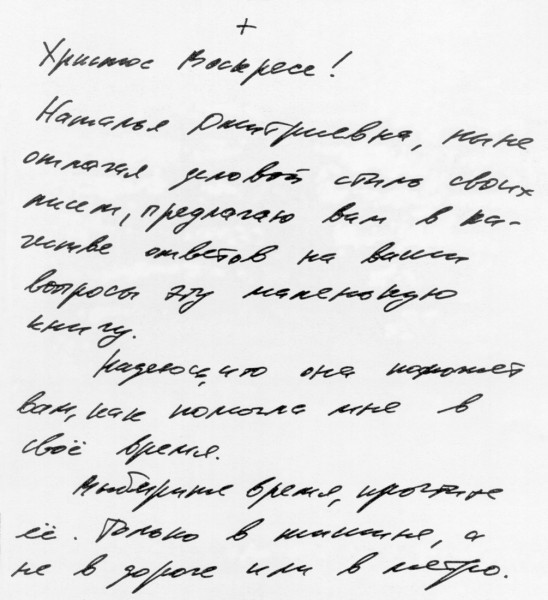 +
Христос Воскресе!
Наталья Дмитриевна, ныне
отлагая деловой стиль своих
писем, предлагаю вам в ка-
честве ответов на ваши
вопросы эту маленькую
книгу.
Надеюсь, что она поможет
вам, как помогла мне в
своё время.
Выберите время, прочтите
её. Только в тишине, а
не в дороге или в метро.